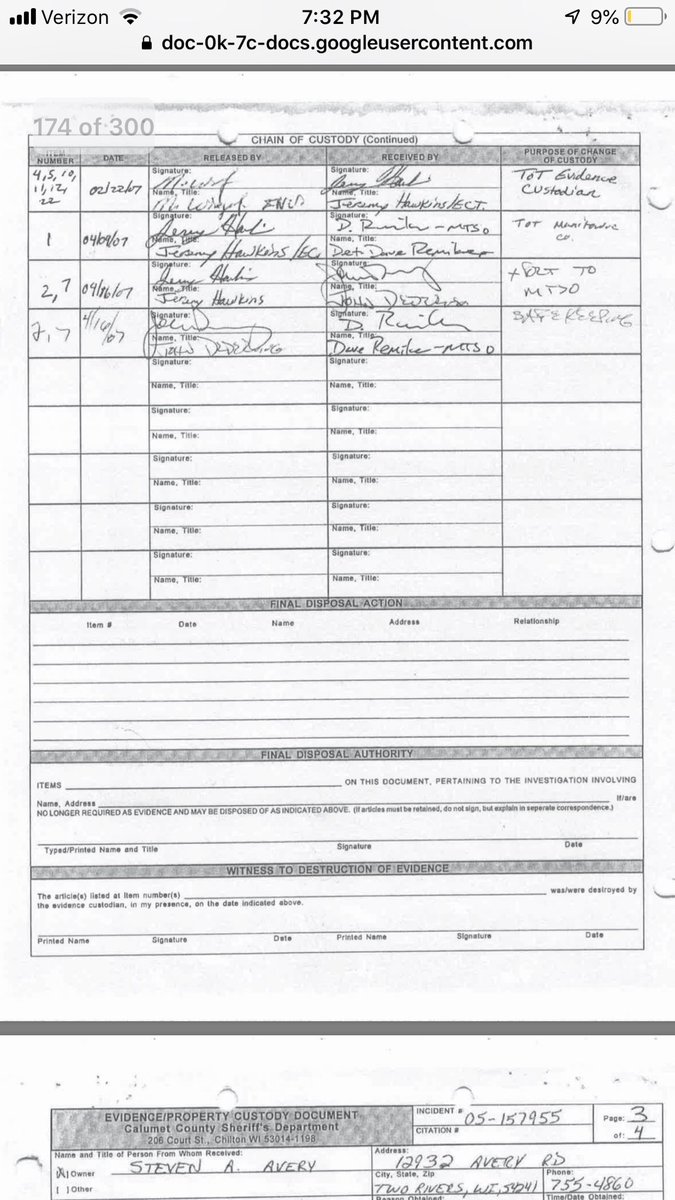 Verizon 7:32 PM 9%
doc-0k-7c-docs.googleusercontent.com
174 of 300
CHAIN OF CUSTODY (Continued)
ITEM NUMBER DATE RELEASED BY RECEIVED BY PURPOSE OF CHANGE OF CUSTODY
4, 5, 10, 11, 12, 22 02/22/07
Signature:
Name, Title:
Signature:
Name, Title:
Jeremy Hawkins/ECT.
TOT Evidence
Custodian
1 04/09/07
Signature:
Name, Title:
Jeremy Hawkins/EC
Signature:
D. Remiker-MTSO
Name, Title:
Det. Dave Remiker
TOT Manitowoc
Co.
2, 7 04/16/07
Signature:
Name, Title:
Jeremy Hawkins
Signature:
Name, Title:
JOHN DEDERING
TO
MTSO
2, 7 4/16/07
Signature:
Name, Title:
JOHN DEDERING
Signature:
D. Remiker
Name, Title:
Dave Remiker-MTSO
SAFEKEEPING
Signature: Signature:
Name, Title: Name, Title:
Signature: Signature:
Name, Title: Name, Title:
Signature: Signature:
Name, Title: Name, Title:
Signature: Signature:
Name, Title: Name, Title:
Signature: Signature:
Name, Title: Name, Title:
FINAL DISPOSAL ACTION
Item # Date Name Address Relationship
FINAL DISPOSAL AUTHORITY
ITEMS ON THIS DOCUMENT, PERTAINING TO THE INVESTIGATION INVOLVING
Name, Address If/are
NO LONGER REQUIRED AS EVIDENCE AND MAY BE DISPOSED OF AS INDICATED ABOVE. (If articles must be retained, do not sign, but explain in seperate correspondence.)
Typed/Printed Name and Title Signature Date
WITNESS TO DESTRUCTION OF EVIDENCE
The article(s) listed at item number(s) was/were destroyed by
the evidence custodian, in my presence, on the date indicated above.
Printed Name Signature Date Printed Name Signature Date
EVIDENCE/PROPERTY CUSTODY DOCUMENT
Calumet County Sheriff's Department
206 Court St., Chilton WI 53014-1198
INCIDENT # 05-157955
CITATION #
Page: 3
of: 4
Name and Title of Person From Whom Received:
[X] Owner STEVEN A. AVERY
[ ] Other
Address:
12932 AVERY RD
City, State, Zip
TWO RIVERS, WI, 54241
Phone:
755-4860
Reason Obtained: Time/Date Obtained